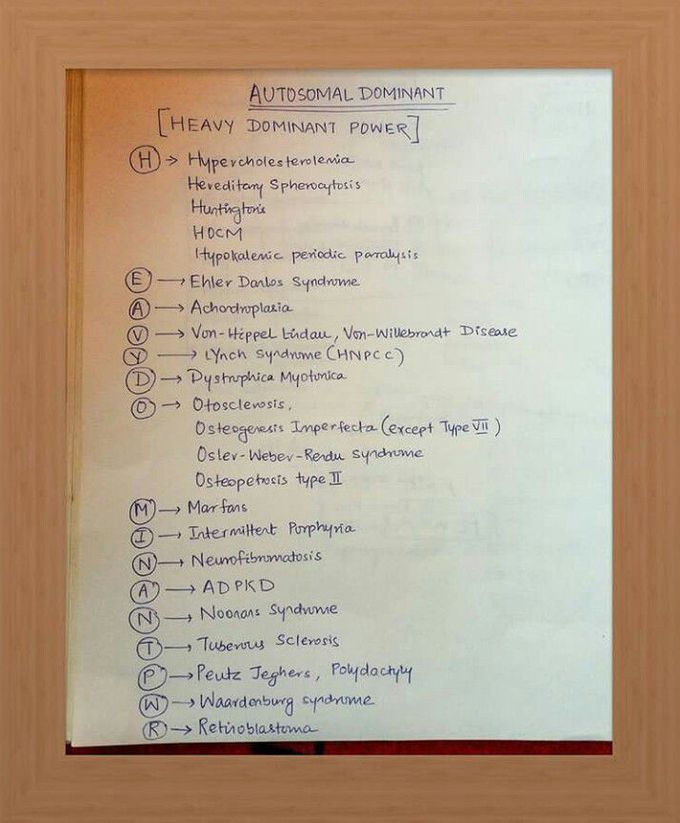 AUTOSOMAL DOMINANT
[HEAVY DOMINANT POWER]
H → Hypercholesterolemia
Hereditary Spherocytosis
Huntington's
HOCM
Hypokalemic periodic paralysis
E → Ehler Danlos Syndrome
A → Achondroplasia
V → Von-Hippel Lindau, Von-Willebrandt Disease
Y → LYnch Syndrome (HNPCC)
D → Dystrophica Myotonica
O → Otosclerosis,
Osteogenesis Imperfecta (except Type VII)
Osler-Weber-Rendu syndrome
Osteopetrosis type II
M → Marfans
I → Intermittent Porphyria
N → Neurofibromatosis
A → ADPKD
N → Noonans Syndrome
T → Tuberous Sclerosis
P → Peutz Jeghers, Polydactyly
W → Waardenburg syndrome
R → Retinoblastoma